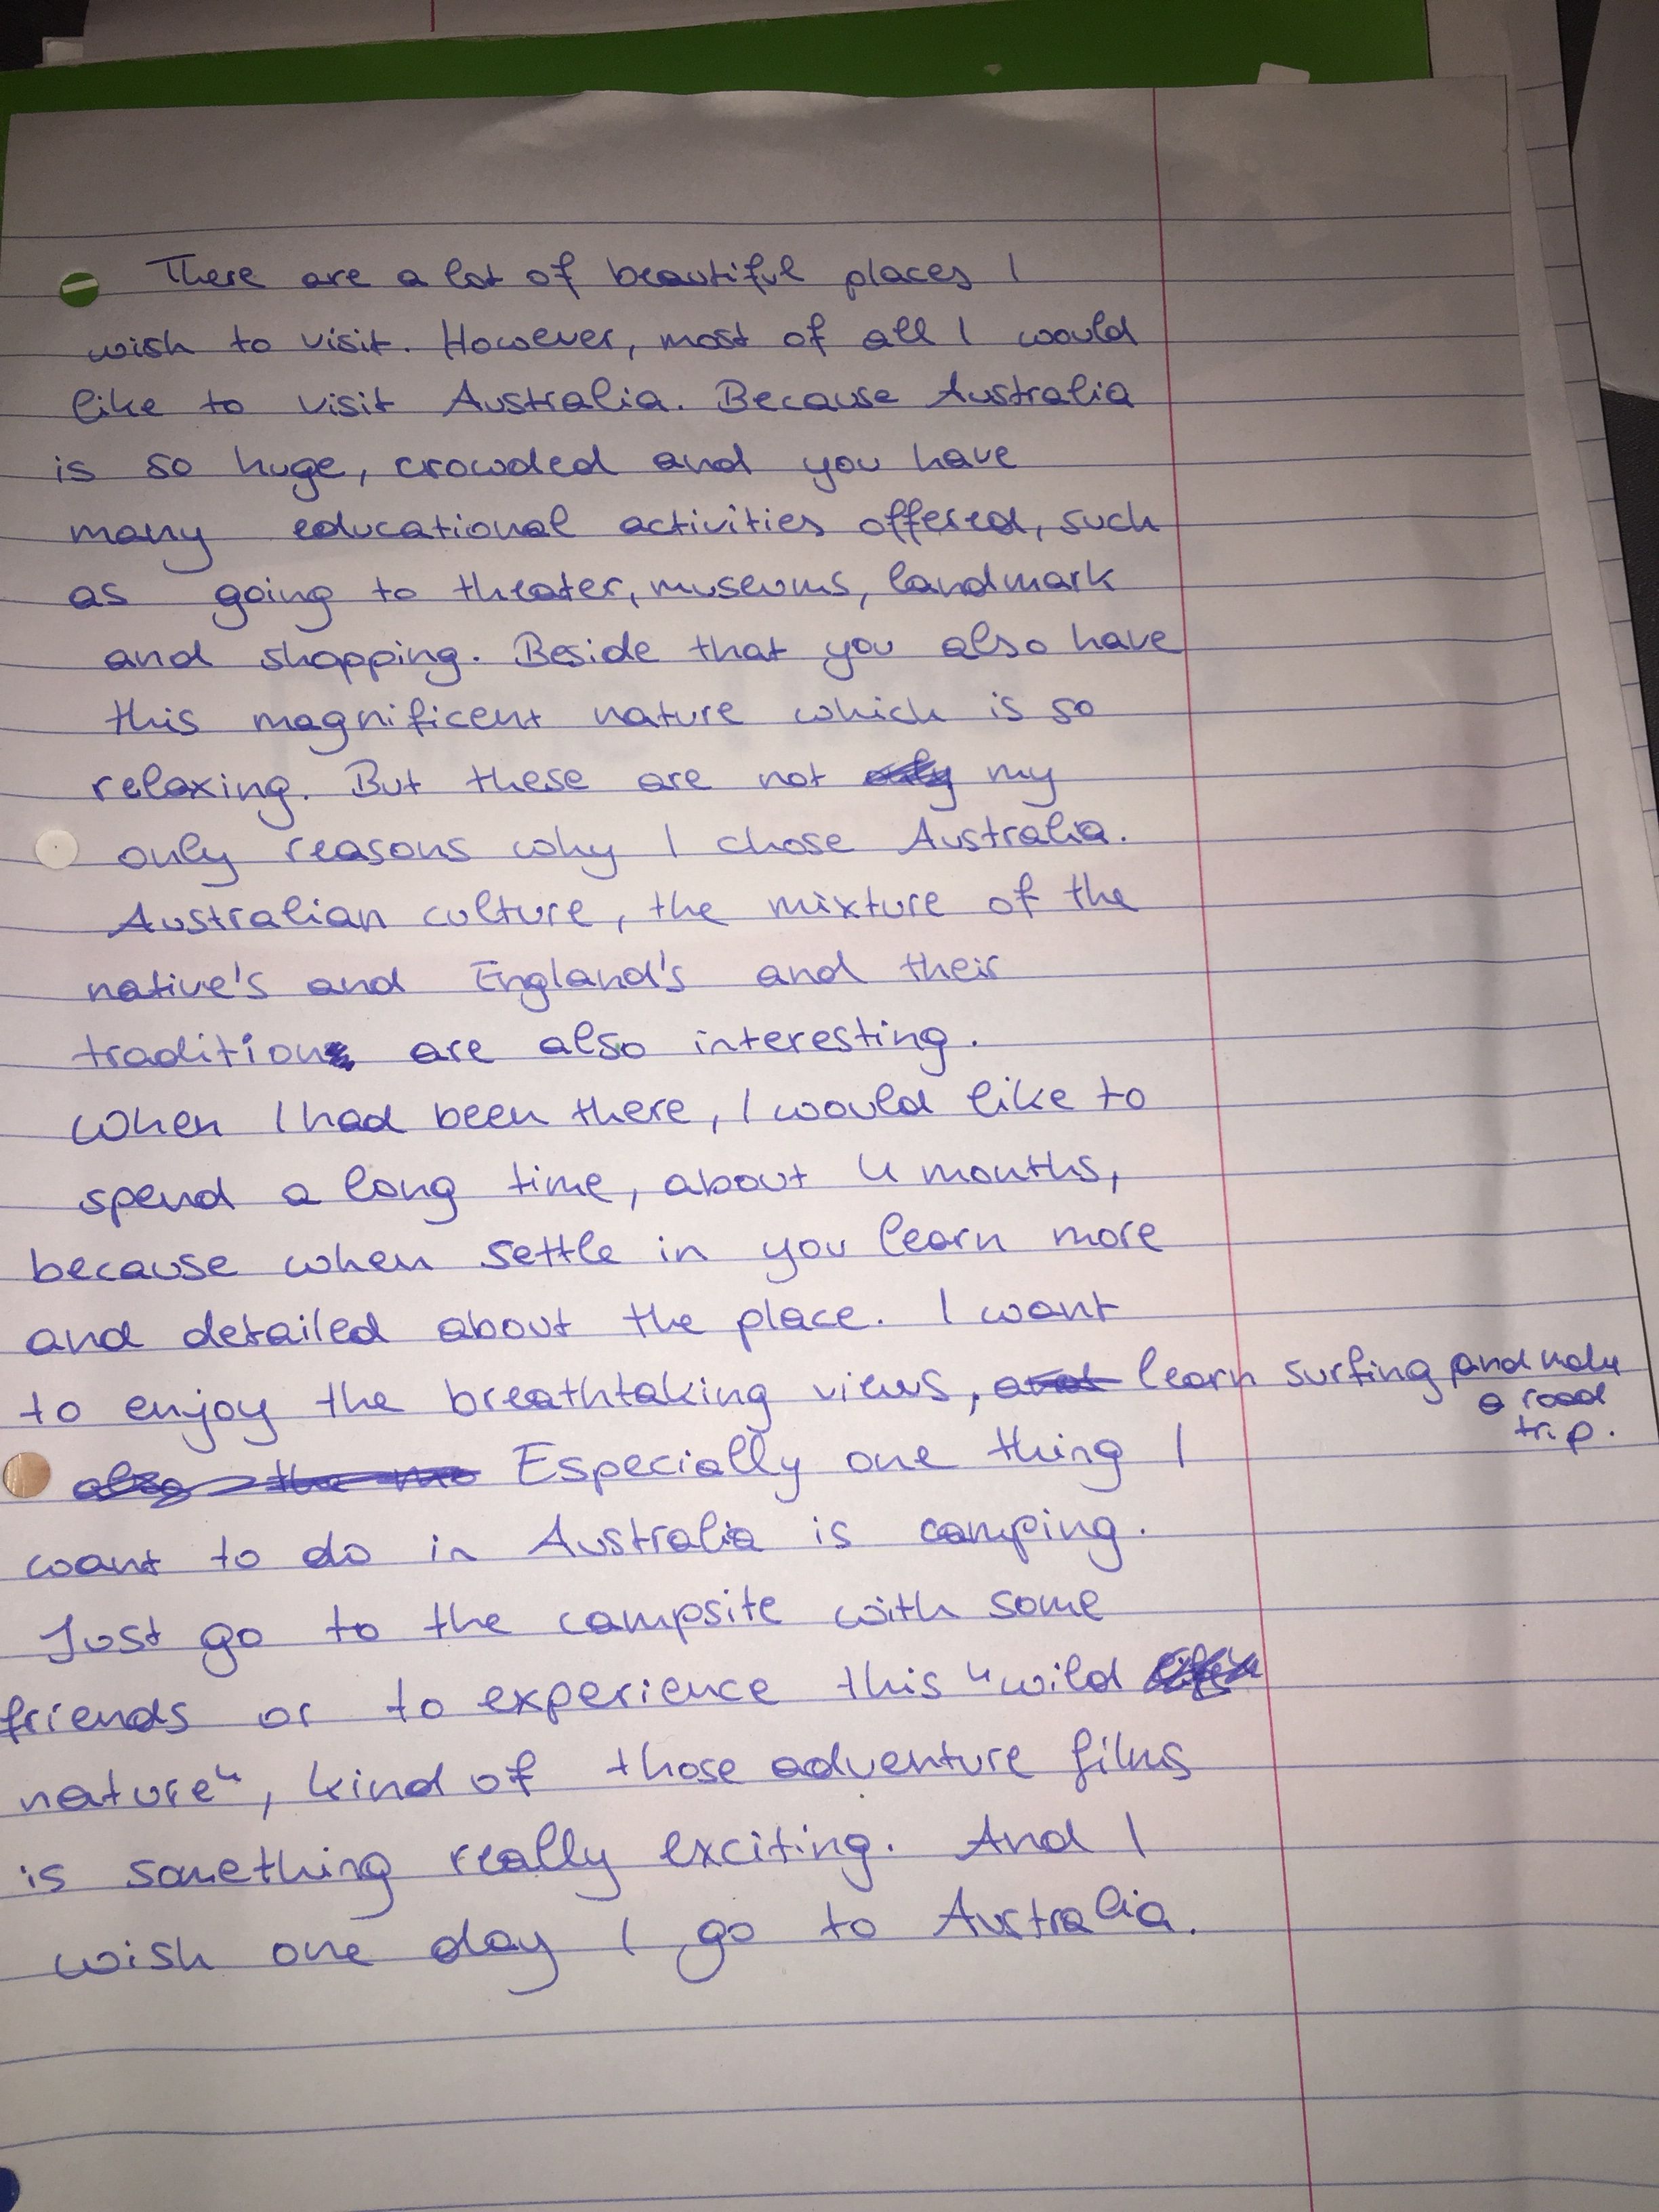 There are a lot of beautiful places I
wish to visit. However, most of all I would
like to visit Australia. Because Australia
is so huge, crowded and you have
many educational activities offered, such
as going to theater, museums, landmark
and shopping. Beside that you also have
this magnificent nature which is so
relaxing. But these are not my
only reasons why I chose Australia.
Australian culture, the mixture of the
native's and England's and their
tradition are also interesting.
When I had been there, I would like to
spend a long time, about 4 months,
because when settle in you learn more
and detailed about the place. I want
to enjoy the breathtaking views, learn surfing and
a road
trip.
Especially one thing I
want to do in Australia is camping.
Just go to the campsite with some
friends or to experience this "wild
nature", kind of those adventure films
is something really exciting. And I
wish one day I go to Australia.